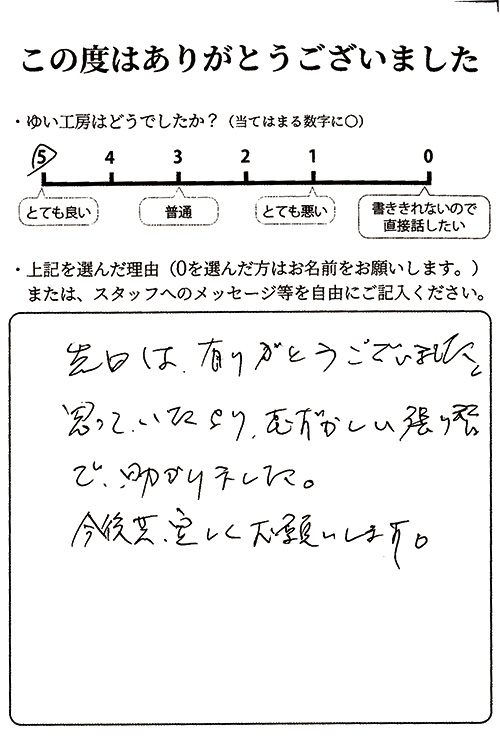 この度はありがとうございました
・ゆい工房はどうでしたか？（当てはまる数字に〇）
5 4 3 2 1 0
とても良い 普通 とても悪い 書ききれないので
直接話したい
・上記を選んだ理由（0を選んだ方はお名前をお願いします。）
または、スタッフへのメッセージ等を自由にご記入ください。
先日は、有りがとうございました
思っていたより、むずかしい張り替
で、助かりました。
今後共、宜しくお願いします。